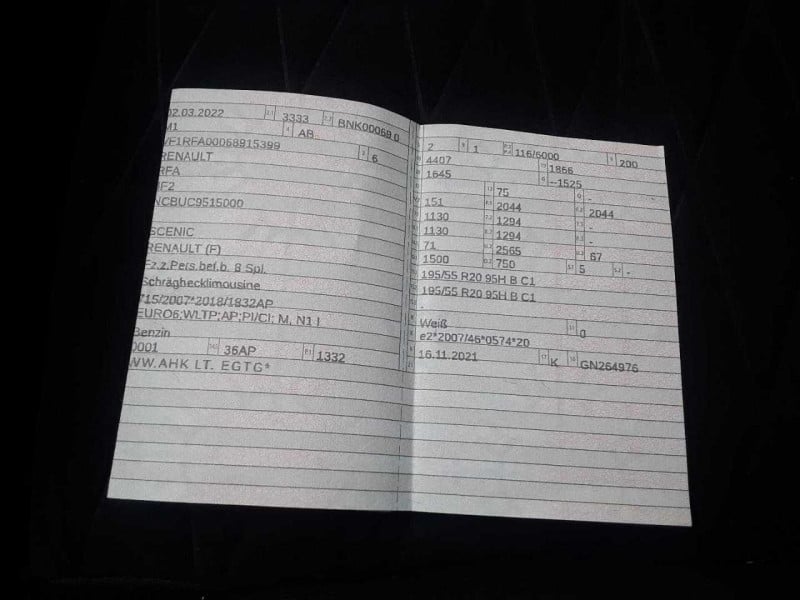 02.03.2022 2.1 3333 2.2 BNK00068 0
M1 4 AB
VF1RFA00068915399 3 6
RENAULT
RFA
NCBUC9515000
SCENIC
RENAULT (F)
Fz.z.Pers.bef.b. 8 Spl.
Schräghecklimousine
715/2007*2018/1832AP
EURO6;WLTP;AP;PI/CI; M, N1 I
Benzin
0001 36AP 1332
WW.AHK LT. EGTG*
2 9 1 116/5000 200
4407 1866
1645 --1525
75 -
151 2044 2044
1130 1294 -
1130 1294 -
71 2565 67
1500 750 5 -
195/55 R20 95H B C1
195/55 R20 95H B C1
-
Weiß 0
e2*2007/46*0574*20
16.11.2021 K GN264976